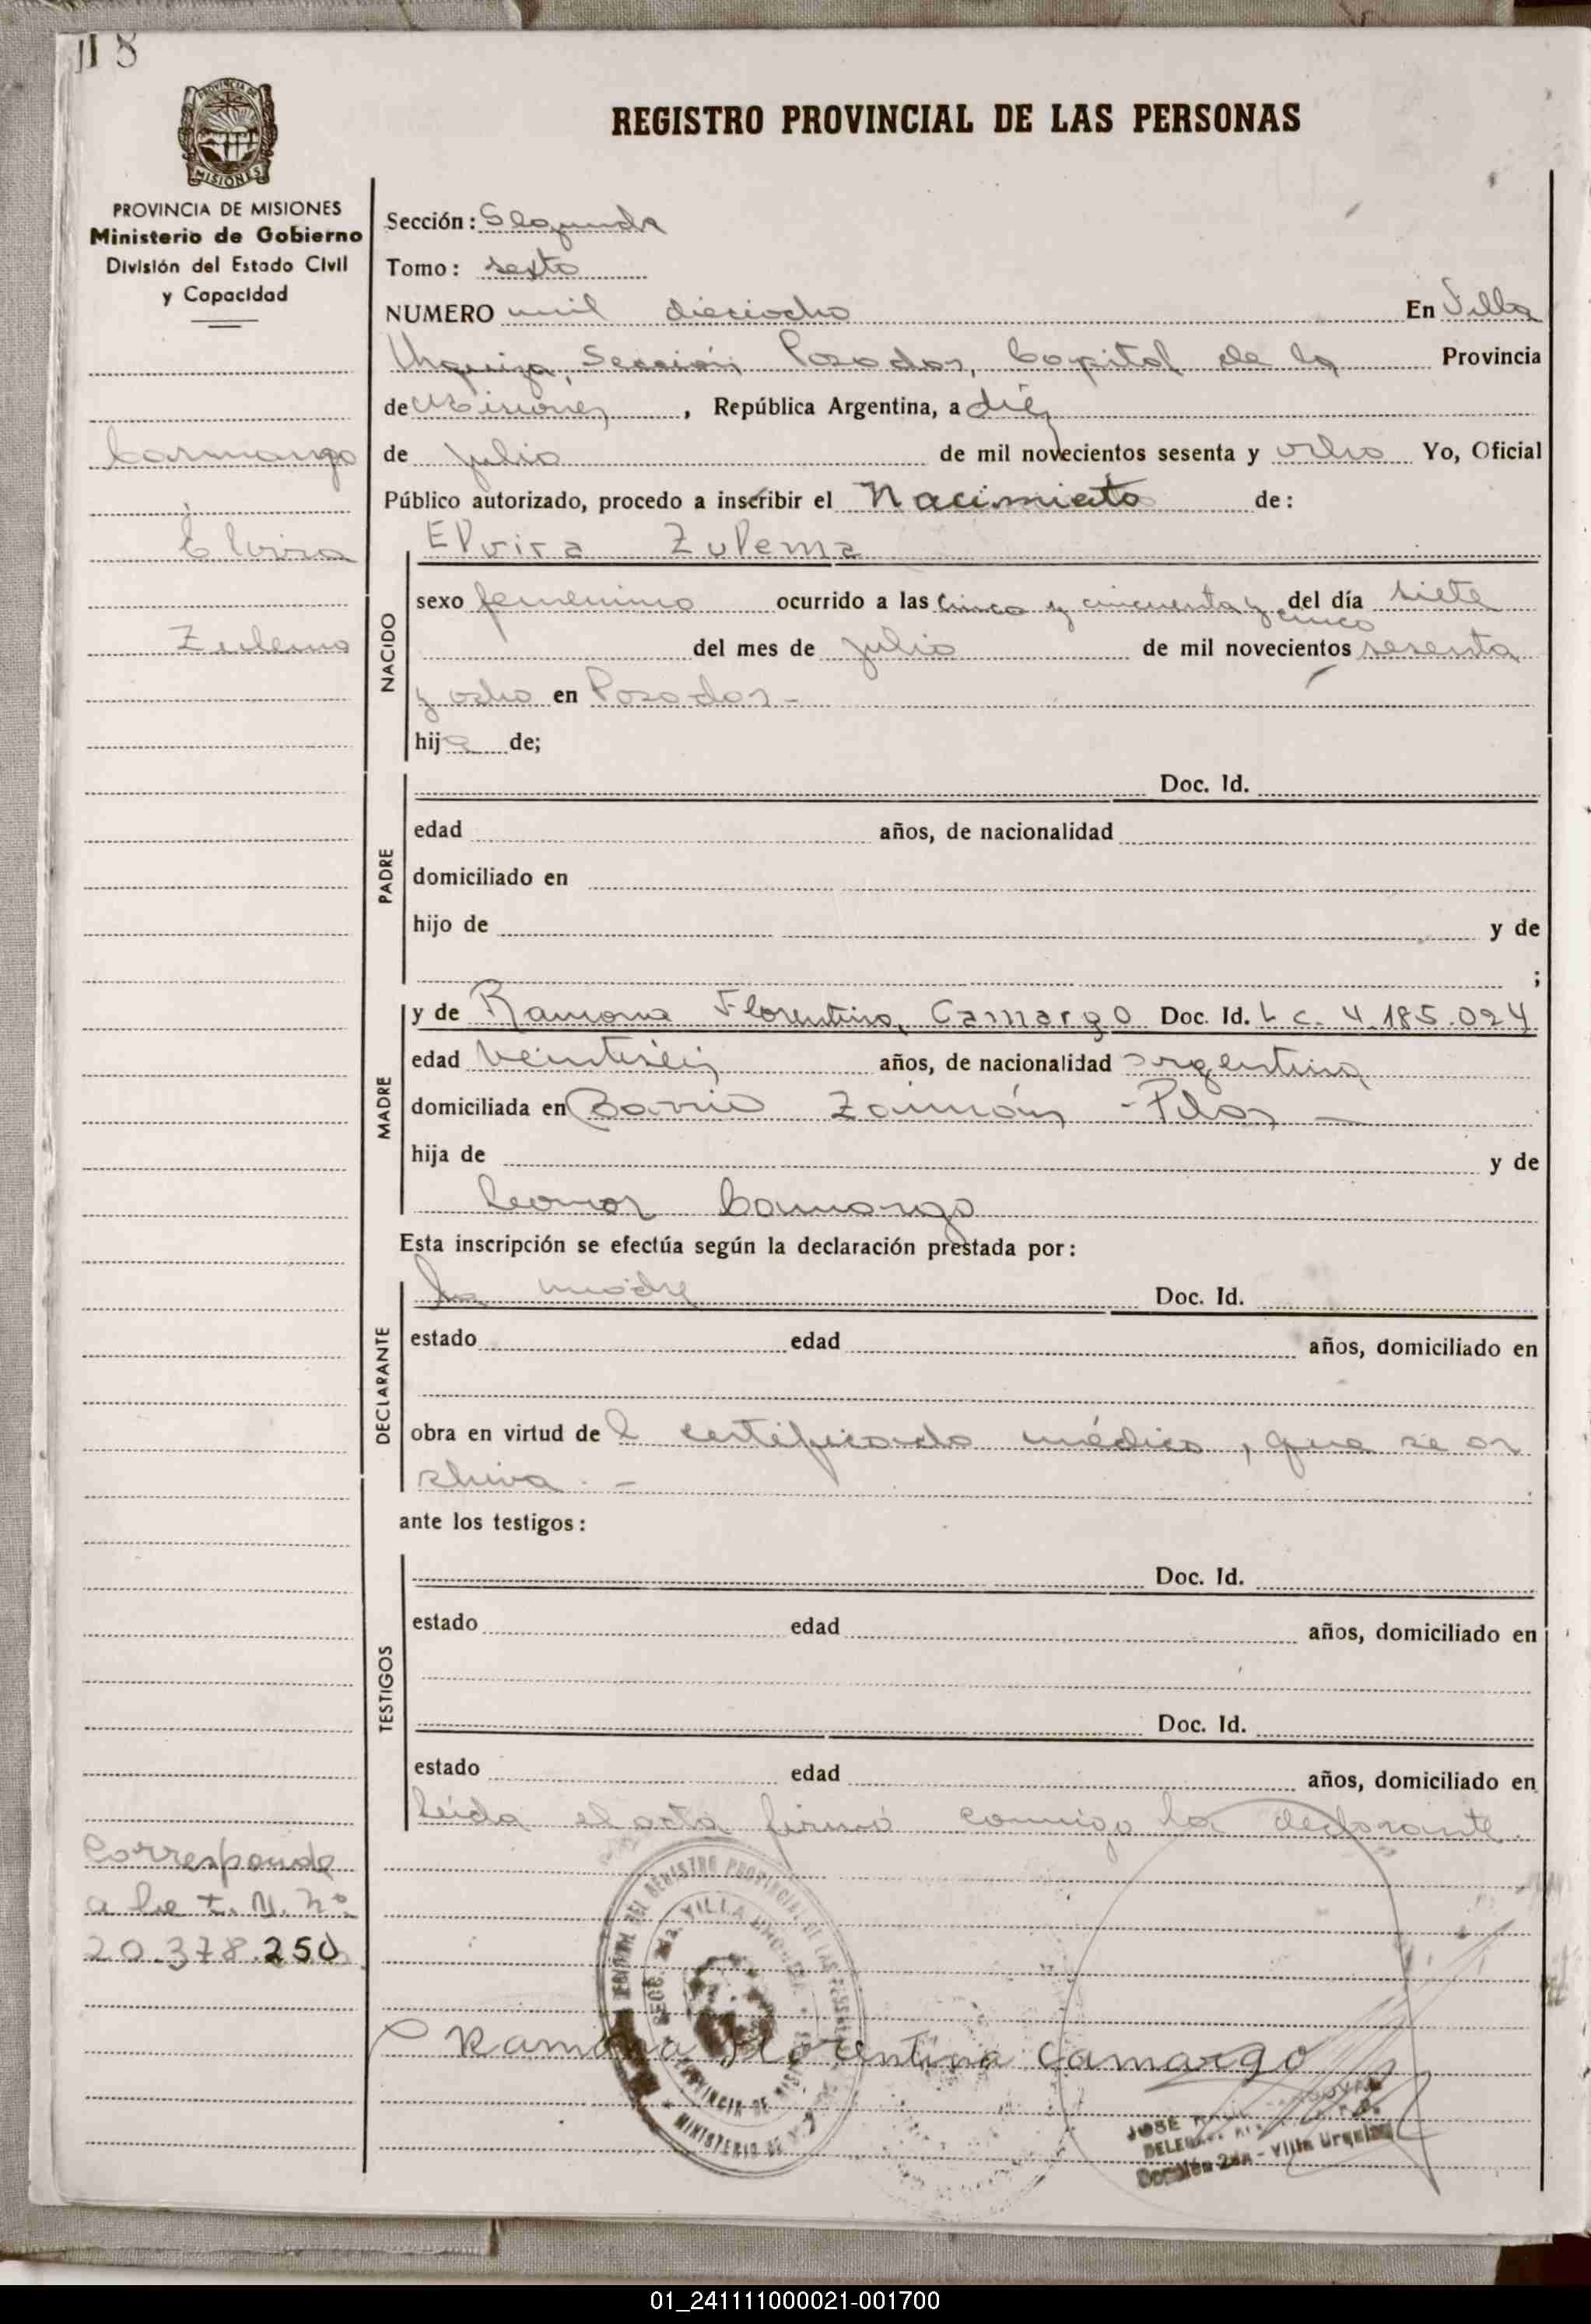 18
REGISTRO PROVINCIAL DE LAS PERSONAS
PROVINCIA DE MISIONES
Ministerio de Gobierno
División del Estado Civil
y Capacidad
Camargo
Elvira
Zulema
Sección: Segunda
Tomo: sexto
NUMERO mil dieciocho En Villa
Urquiza, Sección Posadas, Capital de la Provincia
de Misiones, República Argentina, a diez
de julio de mil novecientos sesenta y ocho Yo, Oficial
Público autorizado, procedo a inscribir el Nacimiento de:
NACIDO
Elvira Zulema
sexo femenino ocurrido a las cinco y cincuenta y cinco del día siete
del mes de julio de mil novecientos sesenta
y ocho en Posadas-
hija de;
PADRE
Doc. Id.
edad años, de nacionalidad
domiciliado en
hijo de y de
;
MADRE
y de Ramona Florentina Camargo Doc. Id. L C. 4.185.024
edad veintiséis años, de nacionalidad argentina
domiciliada en Barrio Zaimán -Pdas-
hija de y de
Leonor Camargo
Esta inscripción se efectúa según la declaración prestada por:
DECLARANTE
la madre Doc. Id.
estado edad años, domiciliado en
obra en virtud del certificado médico, que se ar
chiva.-
ante los testigos:
TESTIGOS
Doc. Id.
estado edad años, domiciliado en
Doc. Id.
estado edad años, domiciliado en
Leída el acta firmó conmigo la declarante.
Corresponde
a la L. M. Nº
20.378.250
DEL REGISTRO PROVINCIAL DE LAS PERSONAS
SECC. 2da. VILLA URQUIZA
PROVINCIA DE MISIONES
MINISTERIO DE
Ramona Florentina Camargo
JOSE
Sección 2da - Villa Urquiza
01_241111000021-001700